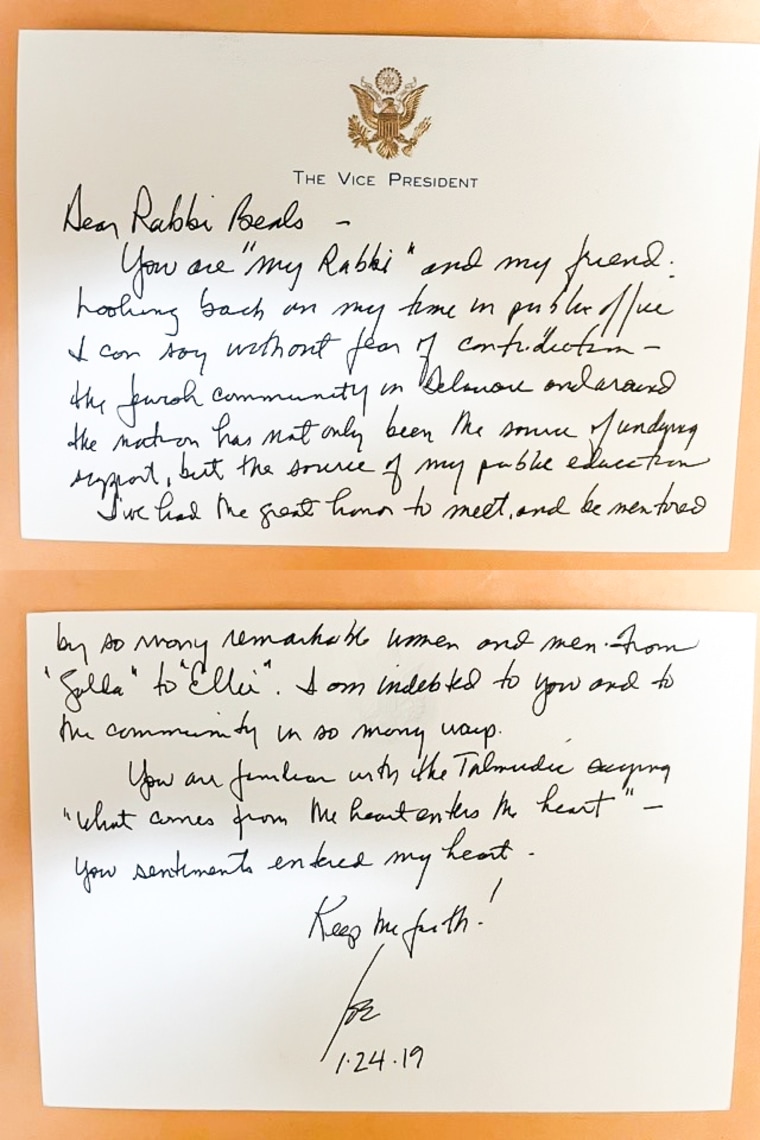 THE VICE PRESIDENT
Dear Rabbi Beals -
You are "my Rabbi" and my friend.
Looking back on my time in public office
I can say without fear of contridiction -
the Jewish community in Delaware and around
the nation has not only been the source of undying
support, but the source of my public education
I've had the great honor to meet, and be mentored
by so many remarkable women and men. From
"Golda" to "Ellie". I am indebted to you and to
the community in so many ways.
You are familiar with the Talmudic saying
"what comes from the heart enters the heart" -
You sentiments entered my heart.
Keep the faith!
Joe
1.24.19